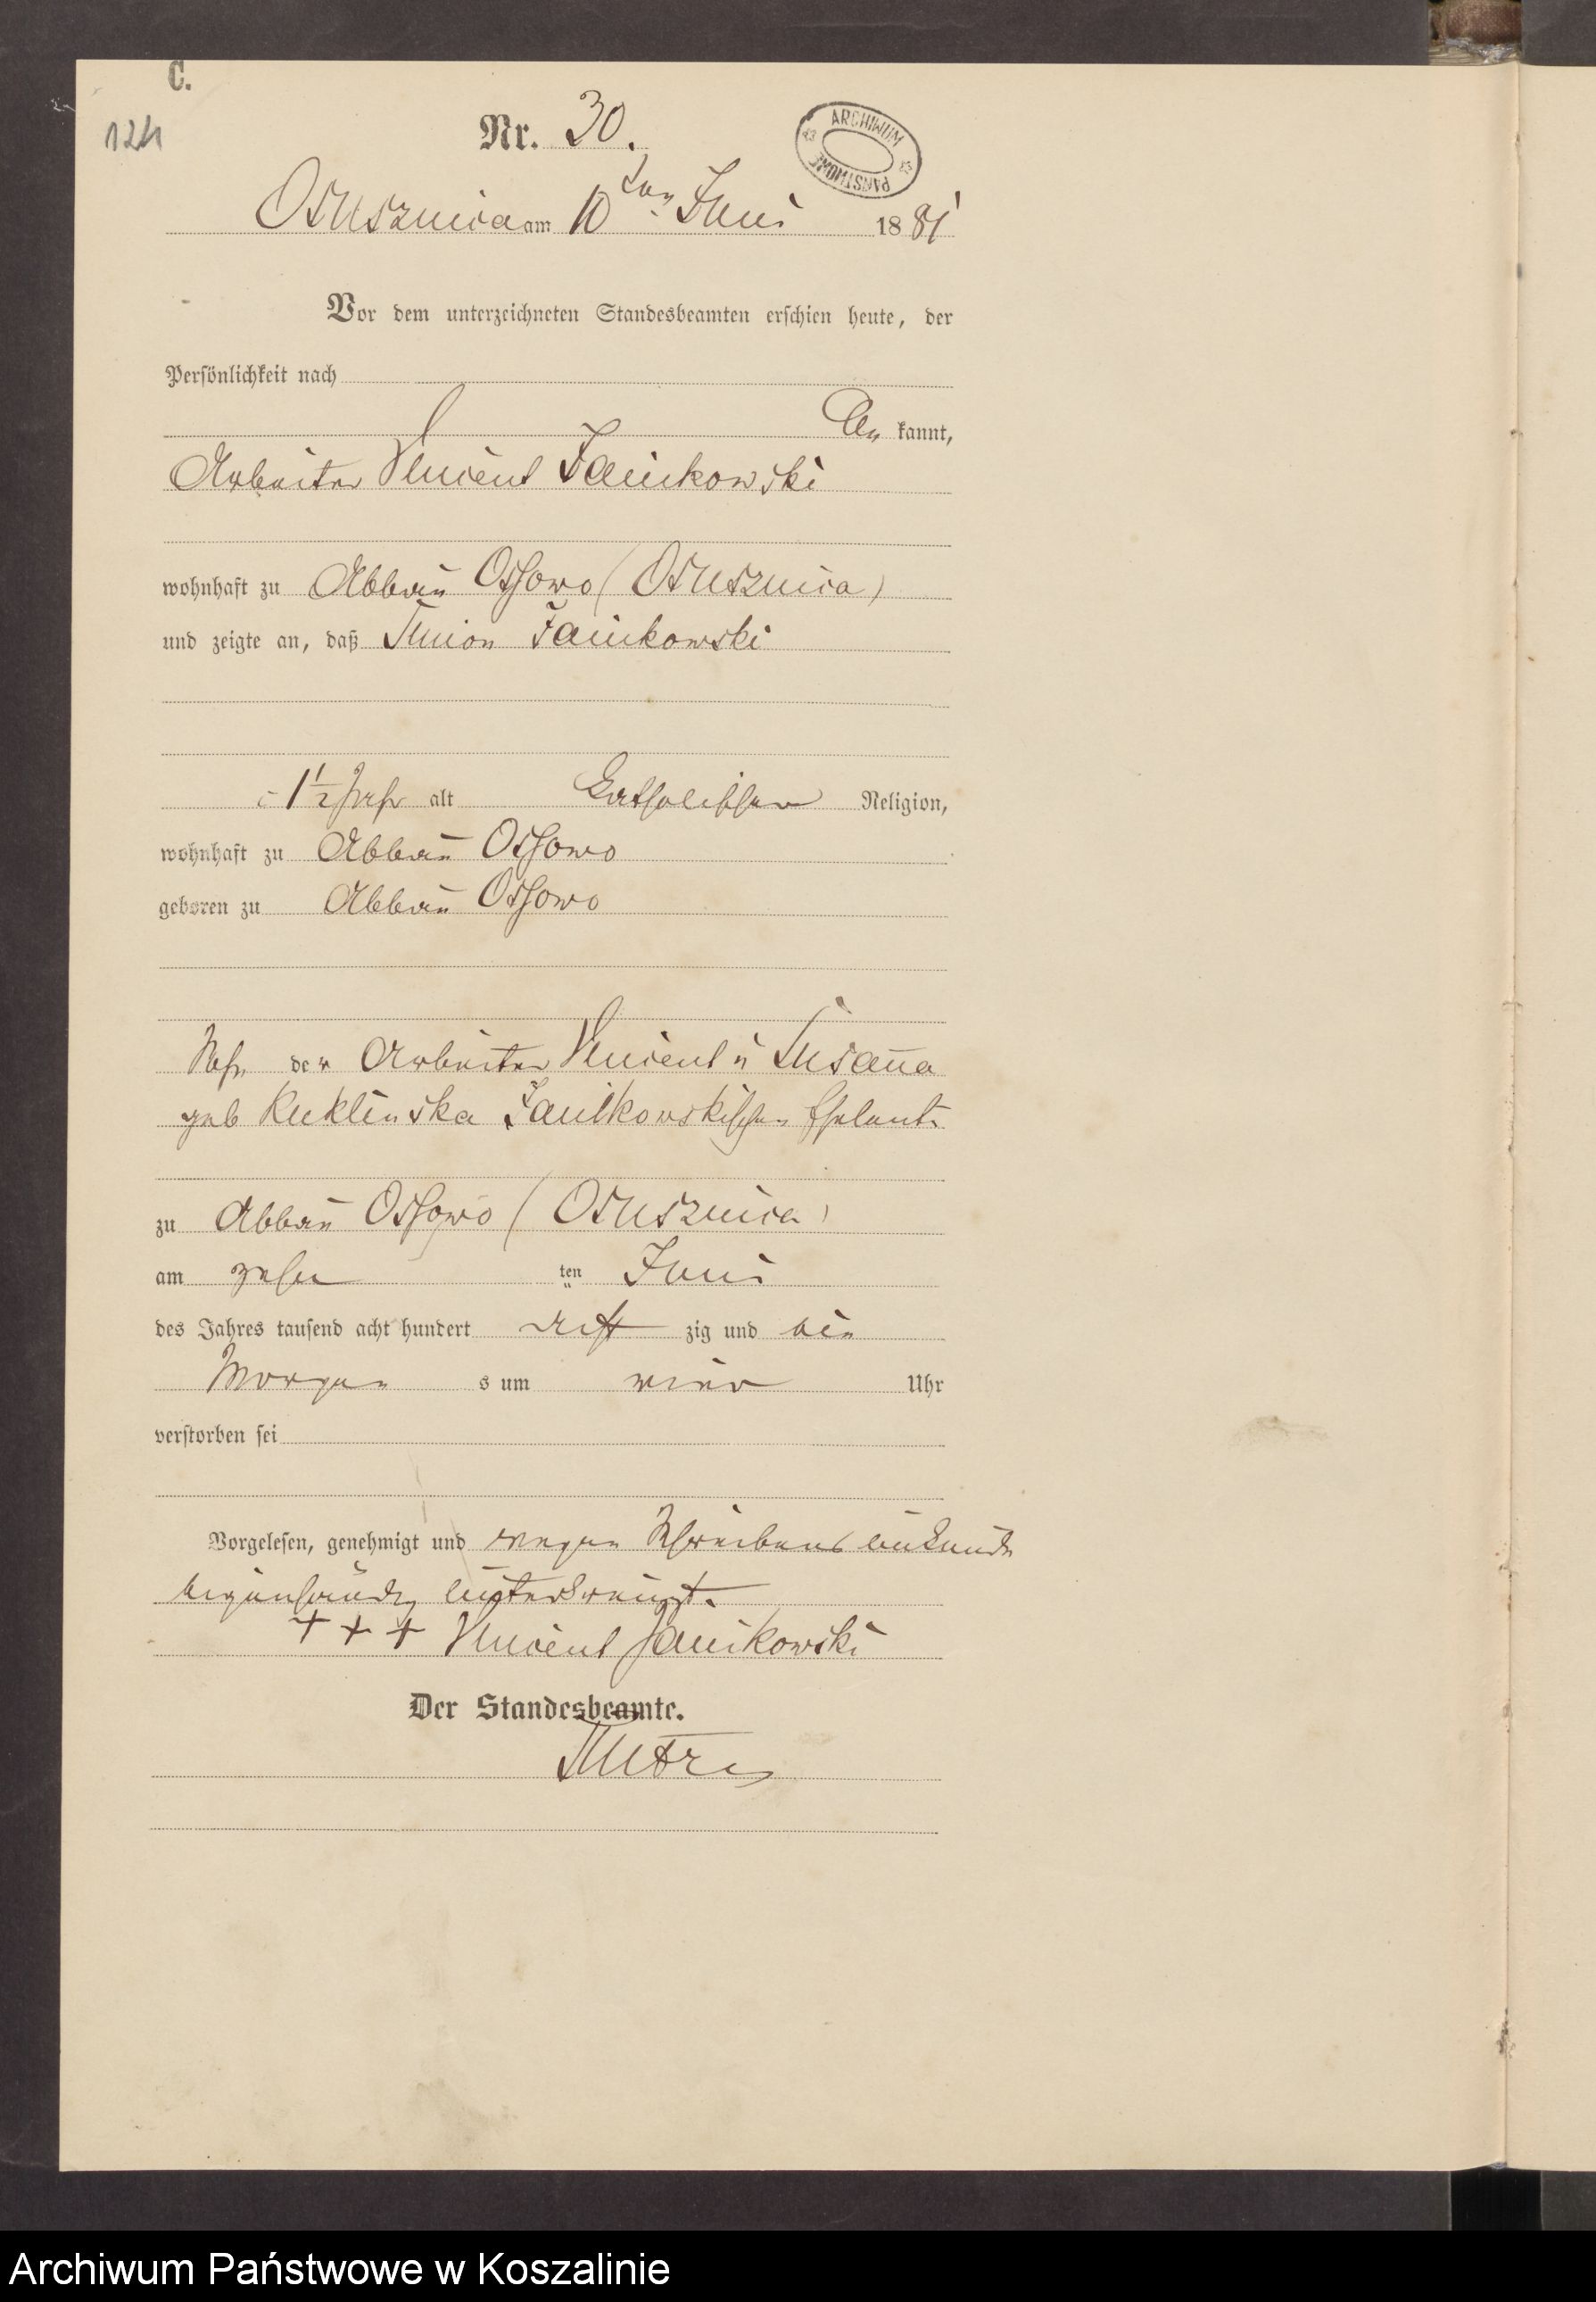 C.
124
Nr. 30.
ARCHIWUM PAŃSTWOWE
Ostusznica am 10ten Juni 1881
Vor dem unterzeichneten Standesbeamten erschien heute, der
Persönlichkeit nach
be kannt,
Arbeiter Vincent Janikowski
wohnhaft zu Abbau Ossowo (Ostusznica)
und zeigte an, daß Janikowski
1½ Jahr alt katholischer Religion,
wohnhaft zu Abbau Ossowo
geboren zu Abbau Ossowo
Sohn der Arbeiter Vincent u Susanna
geb Kuklinska Janikowskischen Eheleute
zu Abbau Ossowo (Ostusznica)
am zehn ten Juni
des Jahres tausend acht hundert acht zig und ein
Morgen s um vier Uhr
verstorben sei
Vorgelesen, genehmigt und wegen Schreibens unkunde
eigenhändig unterkreuzt.
+ + + Vincent Janikowski
Der Standesbeamte.
Archiwum Państwowe w Koszalinie